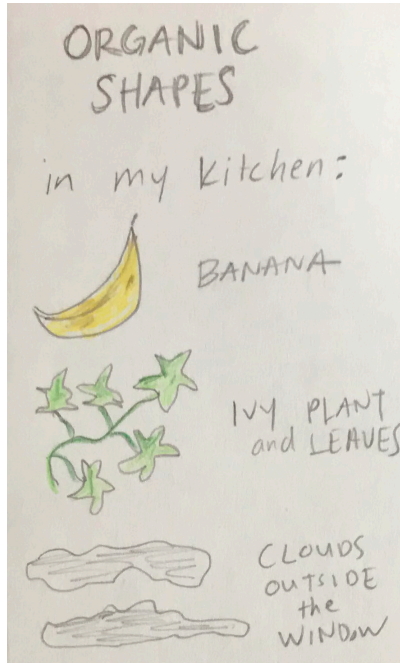 ORGANIC
SHAPES
in my kitchen:
BANANA
IVY PLANT
and LEAVES
CLOUDS
OUTSIDE
the
WINDOW